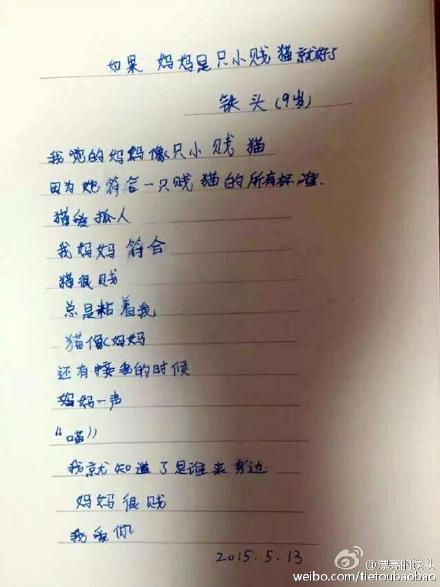 如果 妈妈是只小贱猫就好了
铁头(9岁)
我觉的妈妈像只小贱猫
因为她符合一只贱猫的所有标准.
猫爱抓人
我妈妈符合
猫很贱
总是粘着我
猫像妈妈
还有 我的时候
妈妈一声
“喵”
我就知道了是谁来身边
妈妈很贱
我爱你
2015.5.13
@漂亮的铁头
weibo.com/tietoubaobao